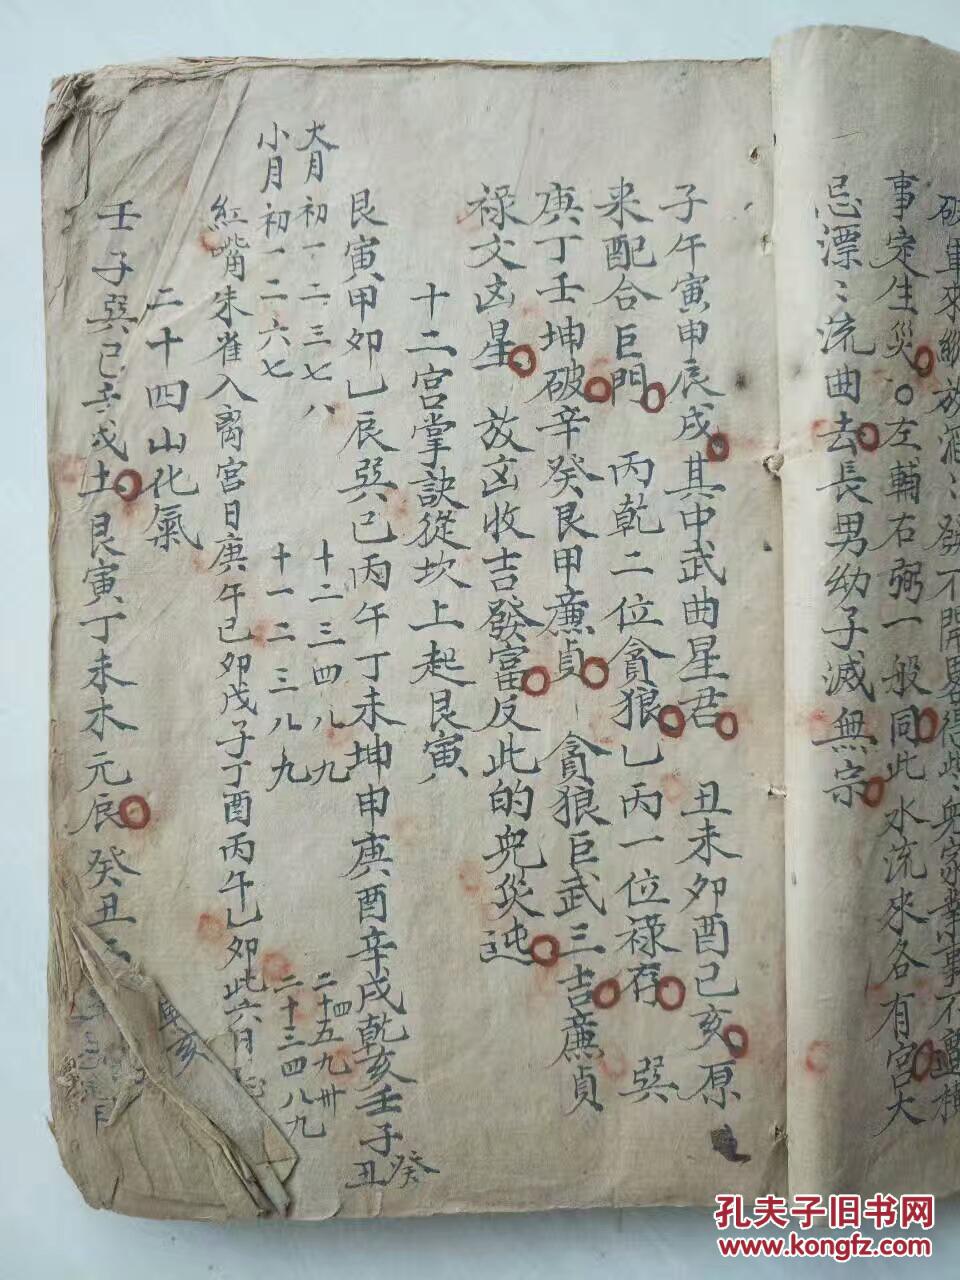 破軍來
事定生災。左輔右弼一般同此水流來各有宮大
忌漂：流曲去長男幼子滅無宗
子午寅申辰戌其中武曲星君　丑未卯酉己亥原
來配合巨門　丙乾二位貪狼乙丙一位祿存　巽
庚丁壬坤破辛癸艮甲廉貞　貪狼巨武三吉廉貞
祿文凶星　放凶收吉發富反此的兇災迍
十二宮掌訣從坎上起艮寅
艮寅甲卯乙辰巽巳丙午丁未坤申庚酉辛戌乾亥壬子癸丑
大月初一二三七八　十二三四八九　二十四五九卅
小月初一二六七　十一二三八九　二十三四八九
紅嘴朱雀入离宮日庚午己卯戊子丁酉丙午乙卯此六日
二十四山化氣
壬子巽巳辛戌土艮寅丁未木元辰癸丑
亥
孔夫子旧书网
www.kongfz.com